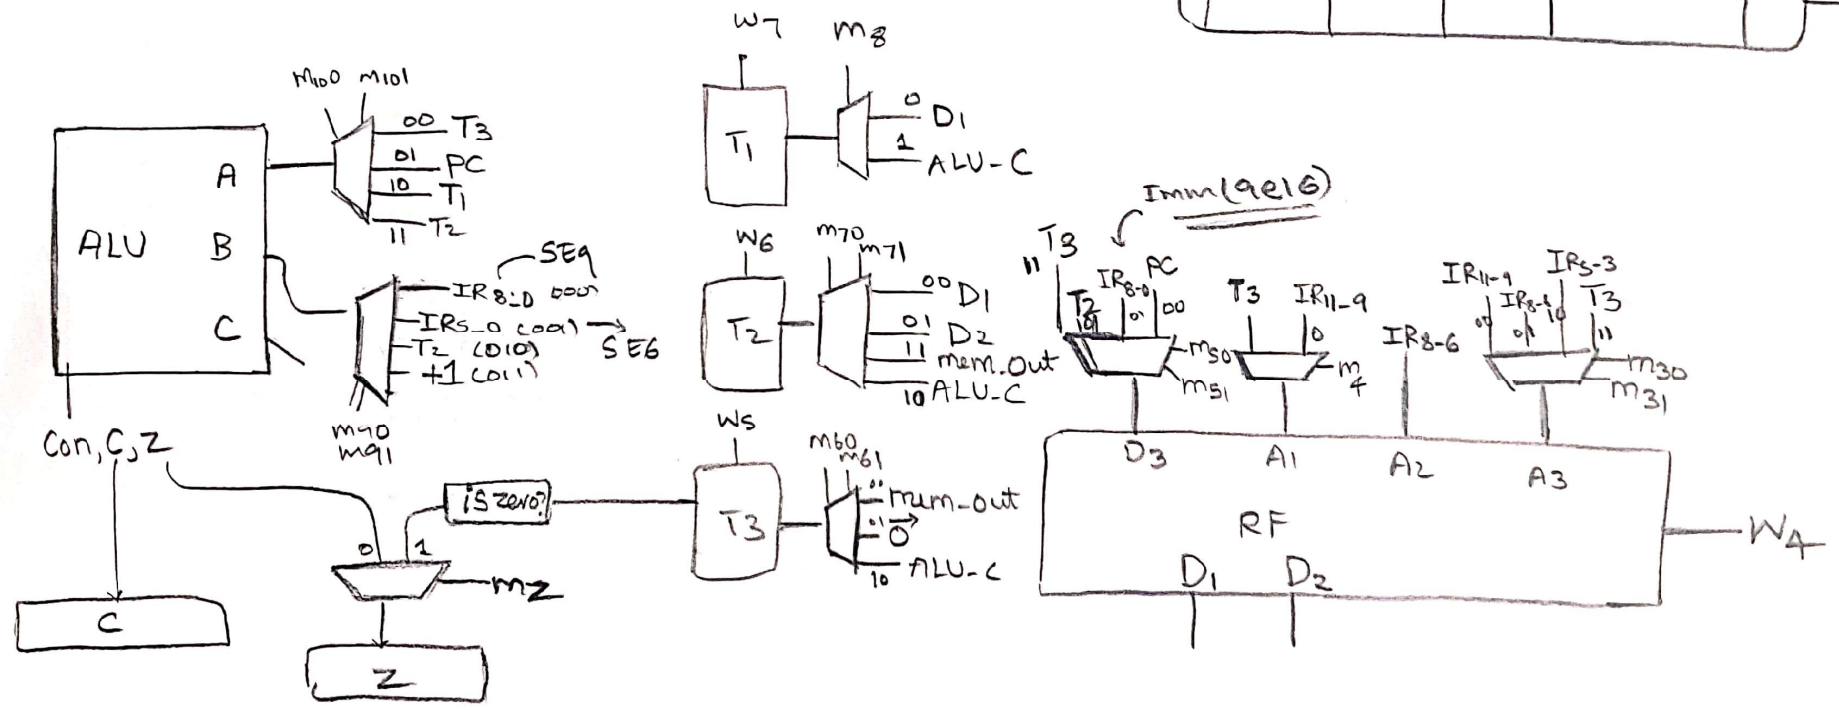 W7
m8
m100 m101
00 T3
01 PC
10 T1
11 T2
A
B
C
ALU
SE9
IR8-0 000
IR5-0 (001) → SE6
T2 (010)
+1 (011)
m90
m91
Con, C, Z
C
0 1
mz
Z
is zero?
T1
0 D1
1 ALU-C
W6
m70
m71
T2
00 D1
01 D2
11 mem.out
10 ALU-C
W5
m60
m61
T3
00 mem-out
01 0
10 ALU-C
Imm(9e16)
T3
11
T2
10
IR8-0
01
PC
00
m50
m51
T3
IR11-9
0
m4
IR8-6
IR11-9
00
IR8-6
01
IR5-3
10
T3
11
m30
m31
D3
A1
A2
A3
RF
W4
D1
D2